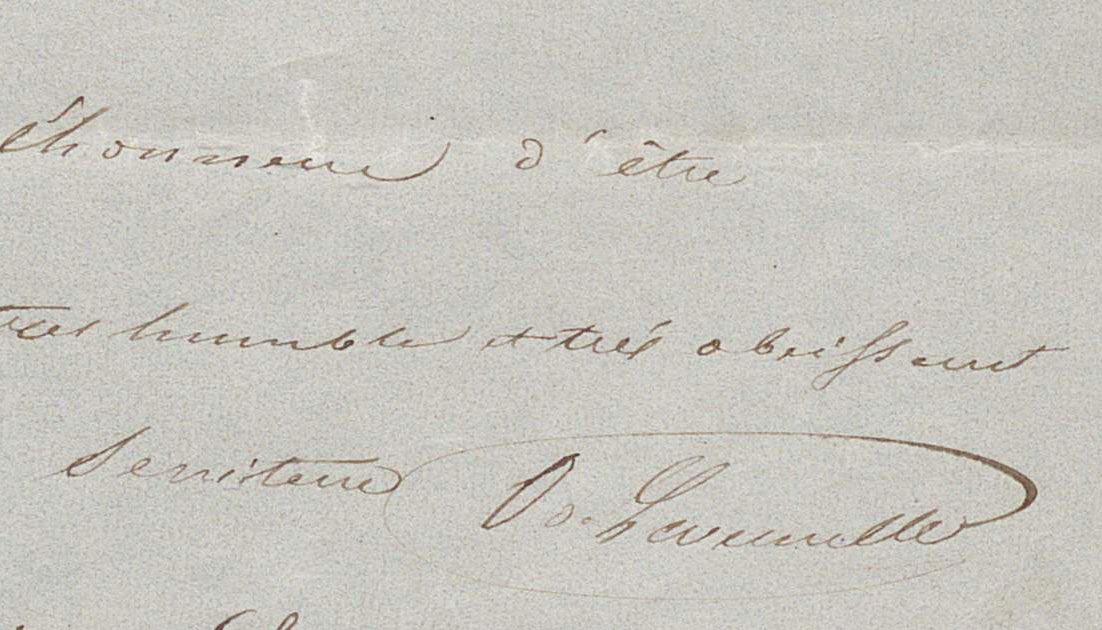 l'honneur d'être
très humble et très obeissant
serviteur